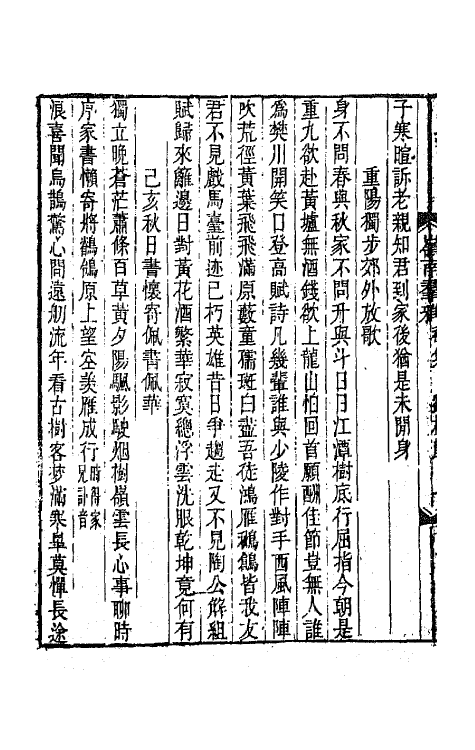 子寒暄訴老親知君到家後猶是未閒身
重陽獨步郊外放歌
身不問春與秋家不問升與斗日日江潭樹底行屈指今朝是
重九欲赴黃壚無酒錢欲上龍山怕回首願酬佳節豈無人誰
爲樊川開笑口登高賦詩凡幾輩誰與少陵作對手西風陣陣
吹荒徑黃葉飛飛滿原藪童孺斑白盡吾徒鴻雁鶺鴒皆我友
君不見戲馬臺前迹已朽英雄昔日爭趨走又不見陶公解組
賦歸來籬邊日對黃花酒繁華寂寞總浮雲洗眼乾坤竟何有
己亥秋日書懷寄佩書佩華
獨立晚蒼茫蕭條百草黃夕陽颿影駛烟樹嶺雲長心事聊時
序家書懶寄將鶺鴒原上望空羨雁成行時得家兄訃音
浪喜聞烏鵲驚心問遠舠流年看古樹客夢滿寒臯莫憚長途